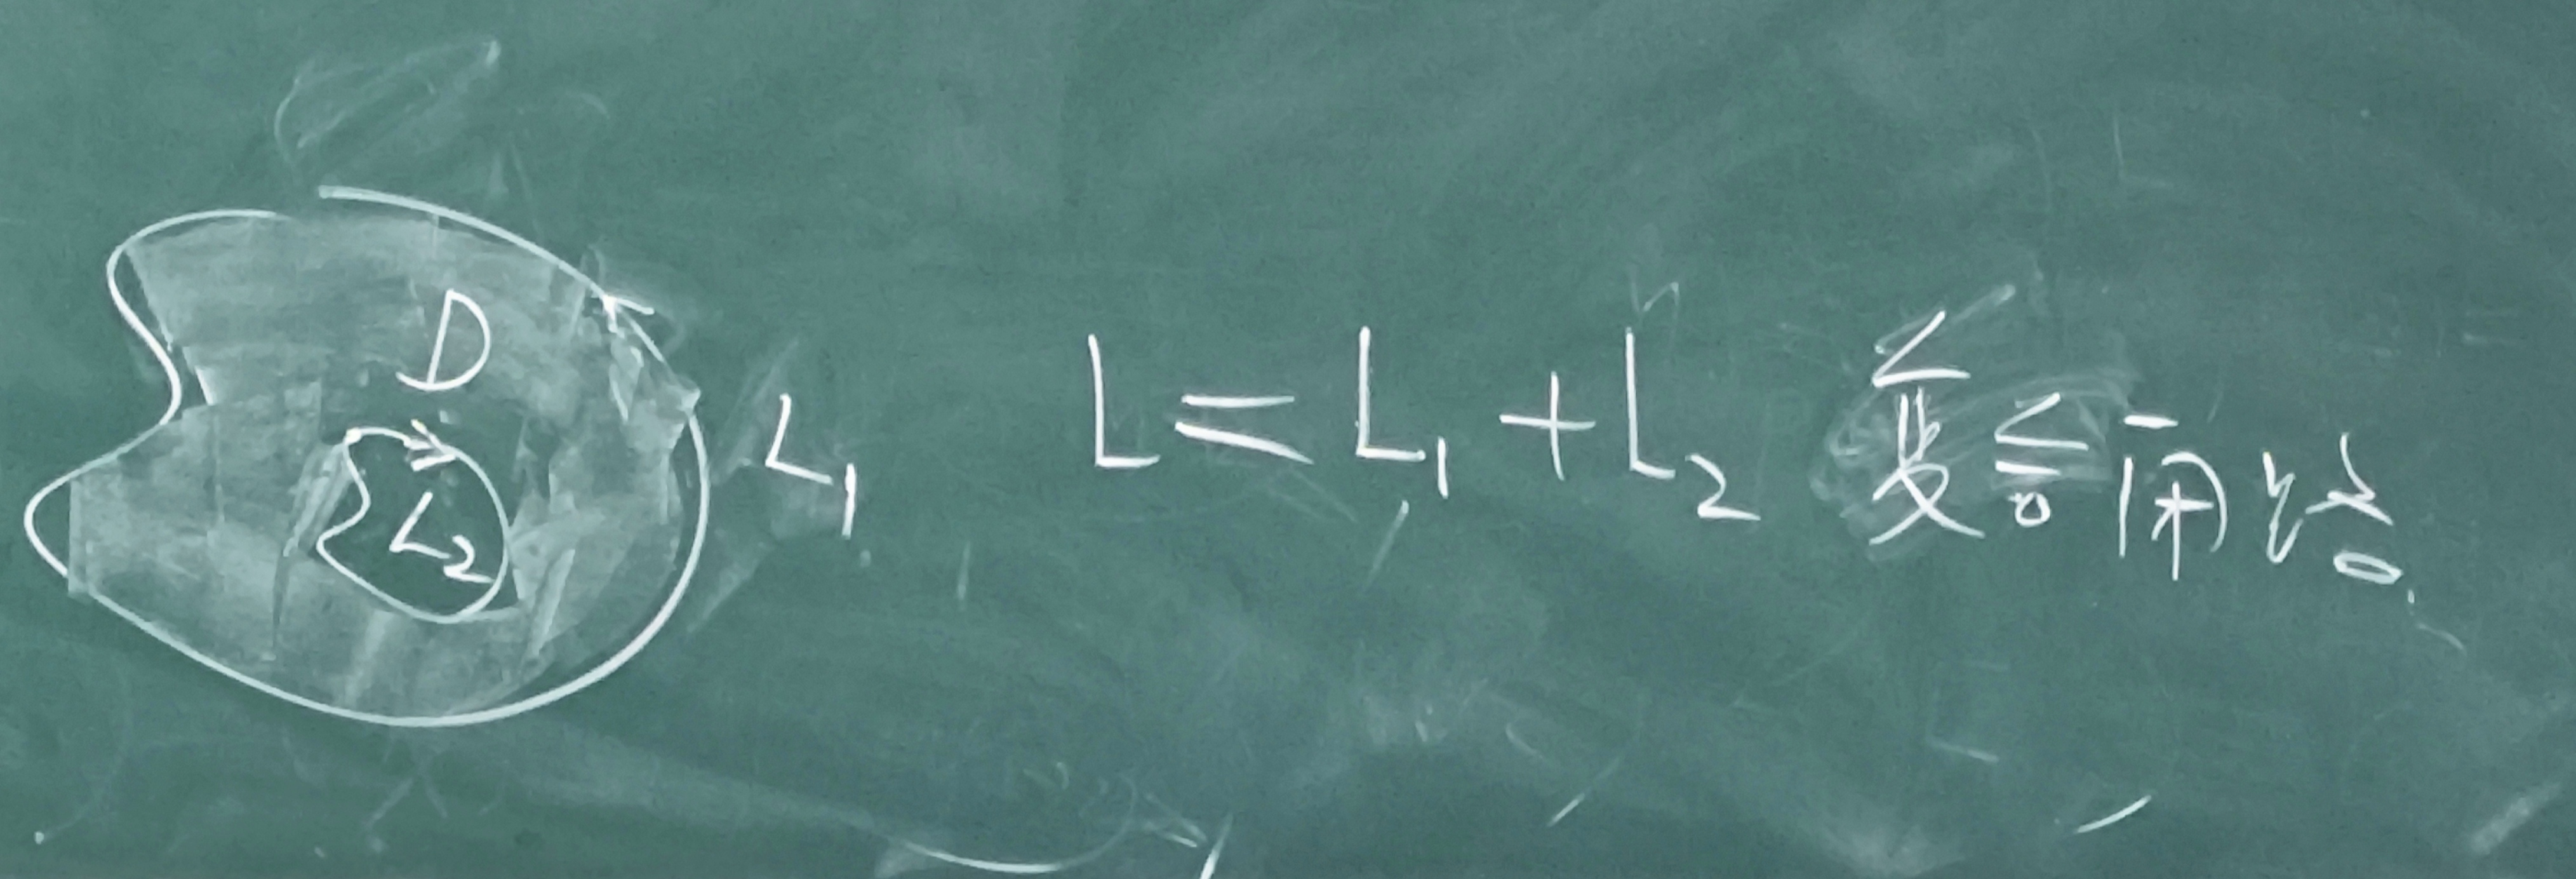 D
L₂
L₁
L = L₁ + L₂ 复合闭路